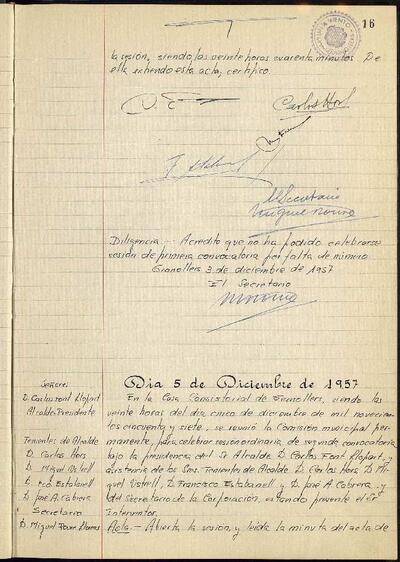 16
la sesión, siendo las veinte horas cuarenta minutos De
ella extiendo esta acta, certifico.
Carlos Hors
El Secretario
Miguel Rover
Diligencia — Acredito que no ha podido celebrarse
sesión de primera convocatoria por falta de número
Granollers 3 de diciembre de 1957
El Secretario
Dia 5 de Diciembre de 1957
Señores
D. Carlos Font Llopart
Alcalde-Presidente
Tenientes de Alcalde
D. Carlos Hors
D. Miguel
D. Fco Estabanell
D. José A. Cabrera
Secretario
D. Miguel
En la Casa Consistorial de Granollers, siendo las
veinte horas del día cinco de diciembre de mil novecien-
tos cincuenta y siete, se reunió la Comisión municipal per-
manente, para celebrar sesión ordinaria, de segunda convocatoria,
bajo la presidencia del Sr Alcalde D. Carlos Font Llopart, y
asistencia de los Sres. Tenientes de Alcalde D. Carlos Hors D. Mi-
guel D. Francisco Estabanell y D. José A. Cabrera, y
del Secretario de la Corporación, estando presente el Sr
Interventor.
Acta.- Abierta la sesión, y leída la minuta del acta de